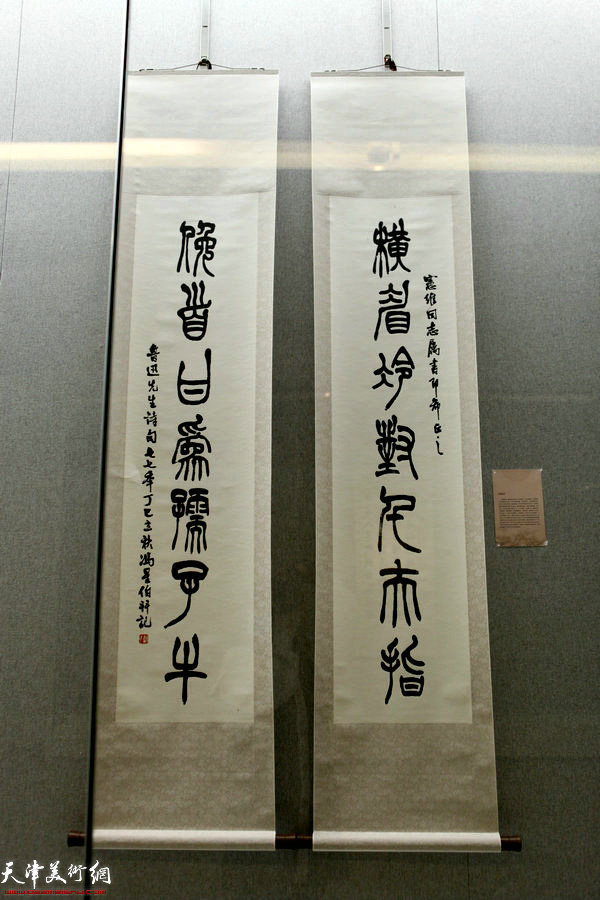 横眉冷對千夫指
憲維同志属書即希正之
俛首甘爲孺子牛
魯迅先生詩句七七年丁巳立秋馮星伯并記
天津美術網